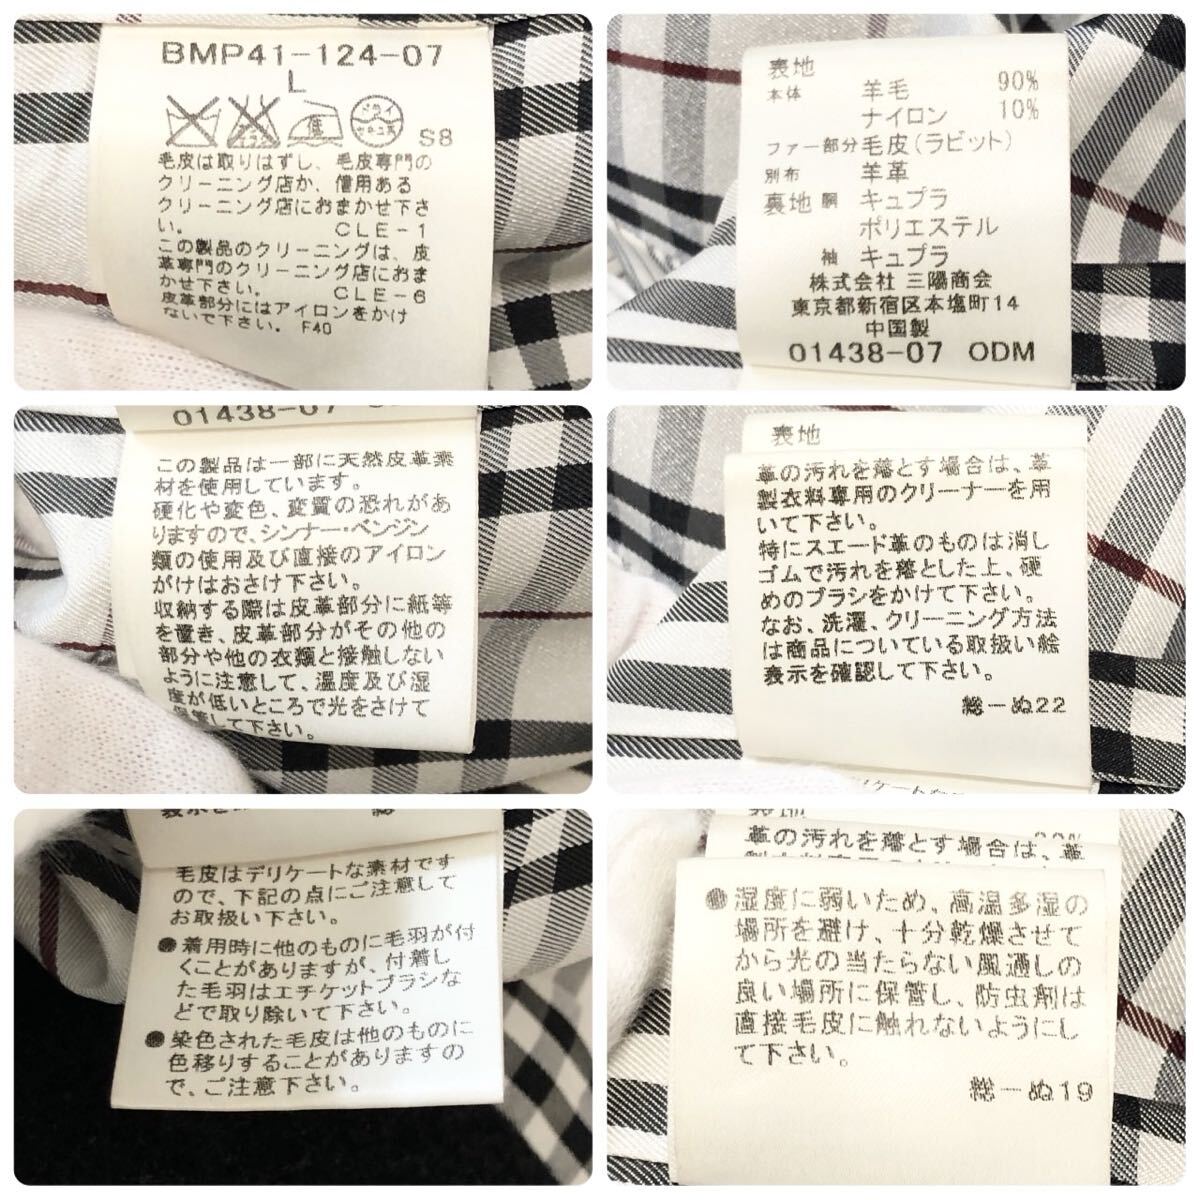 BMP41-124-07
L
S8
毛皮は取りはずし、毛皮専門の
クリーニング店か、信用ある
クリーニング店におまかせ下さ
い。 CLE-1
この製品のクリーニングは、皮
革専門のクリーニング店におま
かせ下さい。 CLE-6
皮革部分にはアイロンをかけ
ないで下さい。 F40
表地
本体 羊毛 90%
ナイロン 10%
ファー部分 毛皮(ラビット)
別布 羊革
裏地 胴 キュプラ
ポリエステル
袖 キュプラ
株式会社 三陽商会
東京都新宿区本塩町14
中国製
01438-07 ODM
01438-07
この製品は一部に天然皮革素
材を使用しています。
硬化や変色、変質の恐れがあ
りますので、シンナー・ベンジン
類の使用及び直接のアイロン
がけはおさけ下さい。
収納する際は皮革部分に紙等
を置き、皮革部分がその他の
部分や他の衣類と接触しない
ように注意して、温度及び湿
度が低いところで光をさけて
保管して下さい。
表地
革の汚れを落とす場合は、革
製衣料専用のクリーナーを用
いて下さい。
特にスエード革のものは消し
ゴムで汚れを落とした上、硬
めのブラシをかけて下さい。
なお、洗濯、クリーニング方法
は商品についている取扱い絵
表示を確認して下さい。
総ーぬ22
毛皮はデリケートな素材です
ので、下記の点にご注意して
お取扱い下さい。
●着用時に他のものに毛羽が付
くことがありますが、付着し
た毛羽はエチケットブラシな
どで取り除いて下さい。
●染色された毛皮は他のものに
色移りすることがありますの
で、ご注意下さい。
表地
革の汚れを落とす場合は、革
●湿度に弱いため、高温多湿の
場所を避け、十分乾燥させて
から光の当たらない風通しの
良い場所に保管し、防虫剤は
直接毛皮に触れないようにし
て下さい。
総ーぬ19